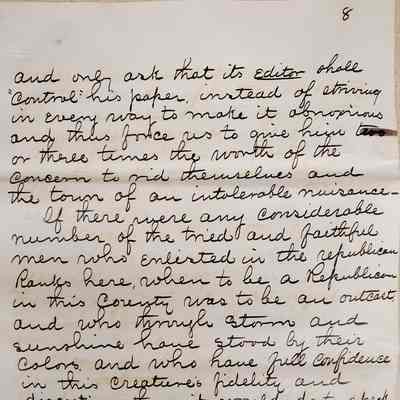 8
and only ask that its Editor shall
"Control" his paper, instead of striving
in every way to make it obnoxious
and thus force us to give him two
or three times the worth of the
concern to rid themselves and
the town of an intolerable nuisance-
If there were any considerable
number of the tried and faithful
men who enlisted in the republican
Ranks here, when to be a Republican
in this County was to be an outcast,
and who through storm and
sunshine have stood by their
Colors, and who have full confidence
in this creature's fidelity and